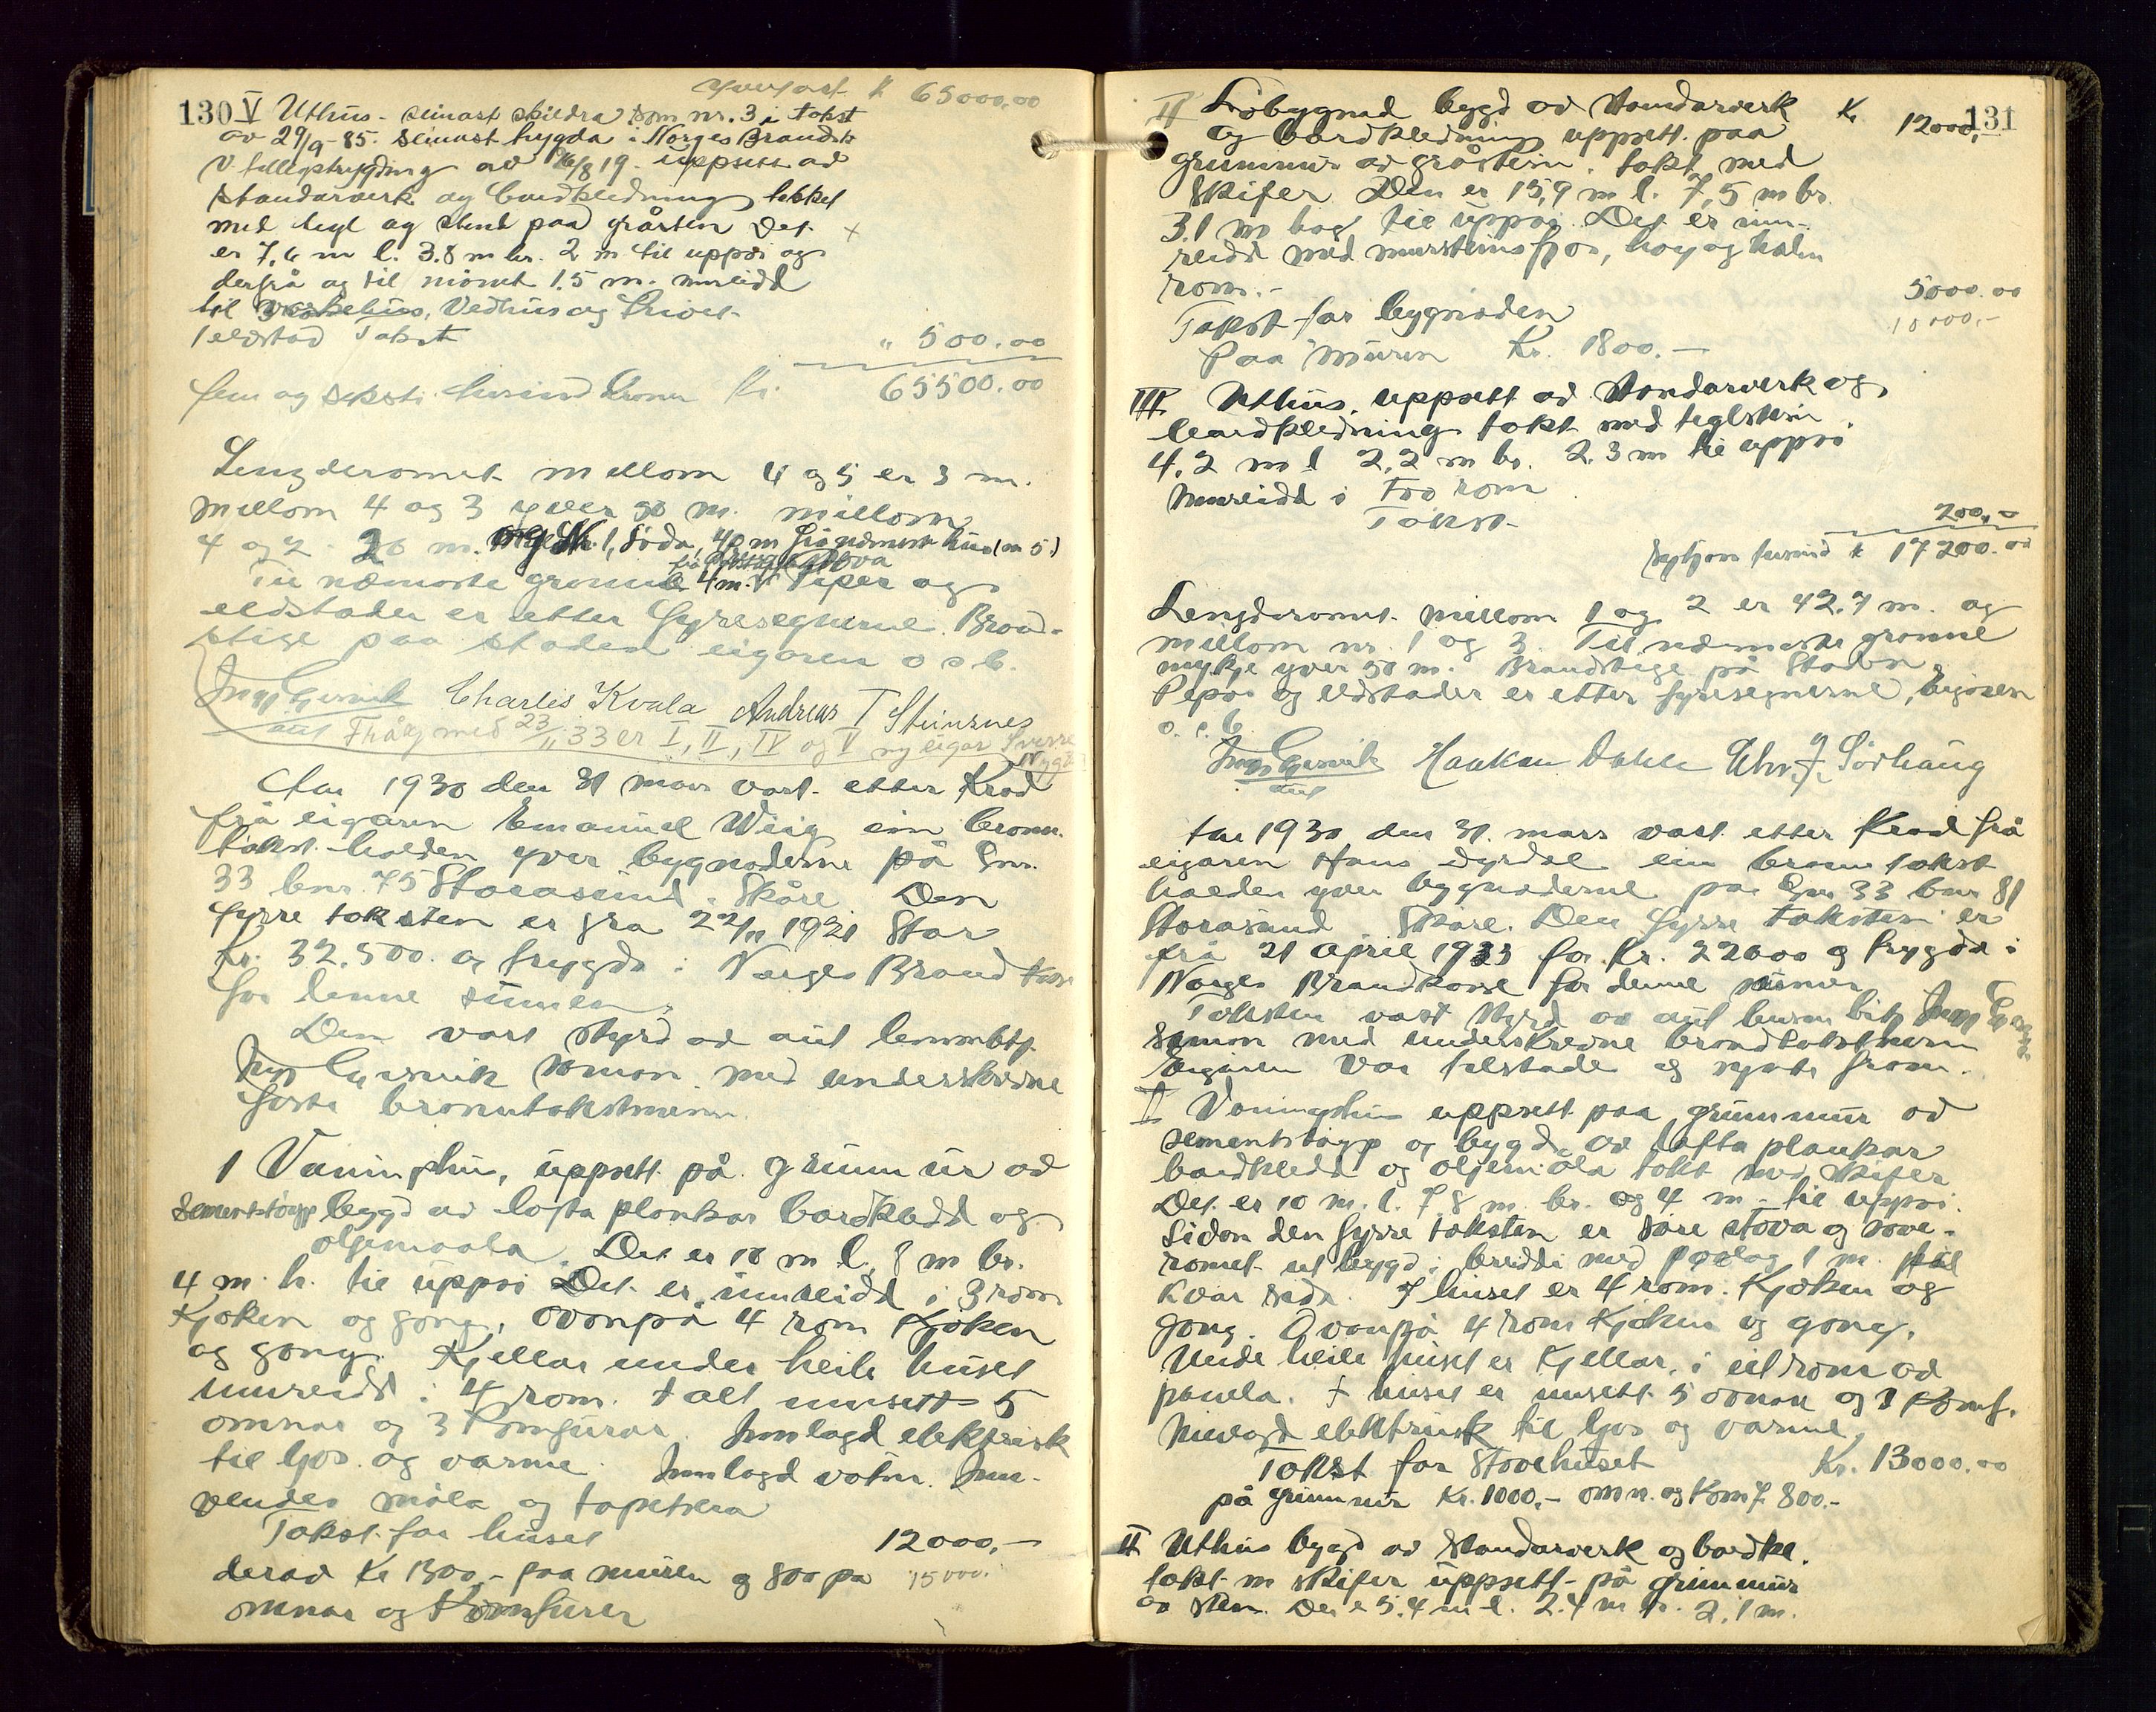 Yverført k 65000,00
130 V Uthus - seinast skildra som nr. 3 i takst
av 29/9-85. seinast trygda i Norges Brandk.
v. tilleggstrygding av 16/8 19. uppsett av
standarverk og bordkledning tekket
med tegl og stend paa gråstein Det +
er 7,6 m l. 3.8 m br. 2 m til uppsi og
derfrå og til mönet 1,5 m. innreidd
til vaskehus, Vedhus og Privet
1 eldstad Takst " 500.00
fem og seksti tusind kroner Kr. 65500.00
Lengderomet millom 4 og 5 er 3 m.
millom 4 og 3 yver 30 m. millom
4 og 2 20 m. Nr. 1, Löda, 40 m frå næmaste hus (nr 5)
Til næmaste granne 4 m. Piper og
eldstader er etter fyresegnerne. Brand-
stige paa staden eigaren o s b.
Ingv Gjesvik Charlis Kvala Andreas T Steinsnes
aut Fråsegn med 23/11 33 er I, II, IV og V ny eigar Sverre
Nygå
Aar 1930 den 31 mars vart etter Krav
frå eigaren Emanuel Wiig ein brann-
takst halden yver bygnaderne på Gnr.
33 bnr. 75 Storasund, Skåre Den
fyrre taksten er fra 22/11 1921 Stor
Kr. 32.500. og trygda i Norges Brandkasse
for denne summen.
Den vart styrd av aut lensmbtj.
Ingv Gjesvik saman med underskrivne
faste branntakstmenn.
1 Vaaningshus, uppsett på grunnmur av
sementstöyp bygd av lafta plankar bordkledd og
oljemaala. Det er 10 m l. 8 m br.
4 m. h. til uppsi Det er innreidd i 3 rom
Kjöken og gong, ovanpå 4 rom Kjöken
og gong. Kjellar under heile huset
innreidd i 4 rom. I alt innsett 5
omnar og 3 Komfurar. Innlagd elektrisk
til ljos og varme. Innlagd vatn. Inn-
vendes måla og tapetsera
Takst for huset 12000,-
derav Kr 1300,- paa muren og 800 pa 15000.
omnar og Komfurer
131
II Löbygnad bygd av standarverk Kr 12000,-
og bordkledning uppsett paa
grunnmur av gråstein, takt med
skifer Den er 15,9 m l. 7,5 m br.
3,1 m høg til uppsi. Det er inn-
reidd med mursteinsfjos, høy og halm
rom.-
Takst for bygnaden 5000.00
Paa muren Kr. 1800.- 10000,-
III Uthus, uppsett av standarverk og
bordkledning takt med teglstein
4,2 m l 2,2 m br. 2.3 m til uppsi
Innreidd i Tvo rom
Takst 200,-
Syttjan tusind k 17200.00
Lengderomet millom 1 og 2 er 42.7 m. og
millom nr. 1 og 3. Til næmaste granne
mykje yver 50 m. Brandstige på Staden.
Pipor og eldstader er etter fyresegnerne, Eigaren
o. s. b.
Ingv Gjesvik Haakon Dahle Chr. J. Sörhaug
aut
Aar 1930 den 31. mars vart etter Krav frå
eigaren Hans Dyrdal ein brann takst
halden yver bygnaderne paa Gnr 33 bnr 81
Storasund Skåre. Den fyrre taksten er
frå 21 april 1923 for Kr. 22600 og trygda i
Norges Brandkasse for denne summen
Taksten vart styrd av aut lensm btj Ingv Gjesvik
saman med underskrivne brandtakstmenn
Eigaren var tilstade og synte fram.
I Vaaningshus uppsett paa grunnmur av
sementstöyp og bygd av lafta plankar
bordkledd og oljemåla takt med skifer
Det er 10 m. l. 7.8 m. br. og 4 m. til uppsi.
Sidan den fyrre taksten er såre stova og sove-
romet utbygd i breidde med paalag 1 m. til
kvar side. I huset er 4 rom. Kjöken og
gong. Ovanpå 4 rom Kjöken og gong.
Unde heile huset er Kjellar, i eit rom av
panela. I huset er innsett 5 ovnar og 2 Komf.
Innlagd elektrisk til ljos og varme.
Takst for Stovehuset Kr. 13000.00
på grunnmur Kr. 1000,- omn. og Komf. 800.-
II Uthus bygd av standarverk og bordkl.
takt m skifer uppsett på grunnmur
av stein. Det e 5.4 m l. 2.4 m br. 2.1 m.